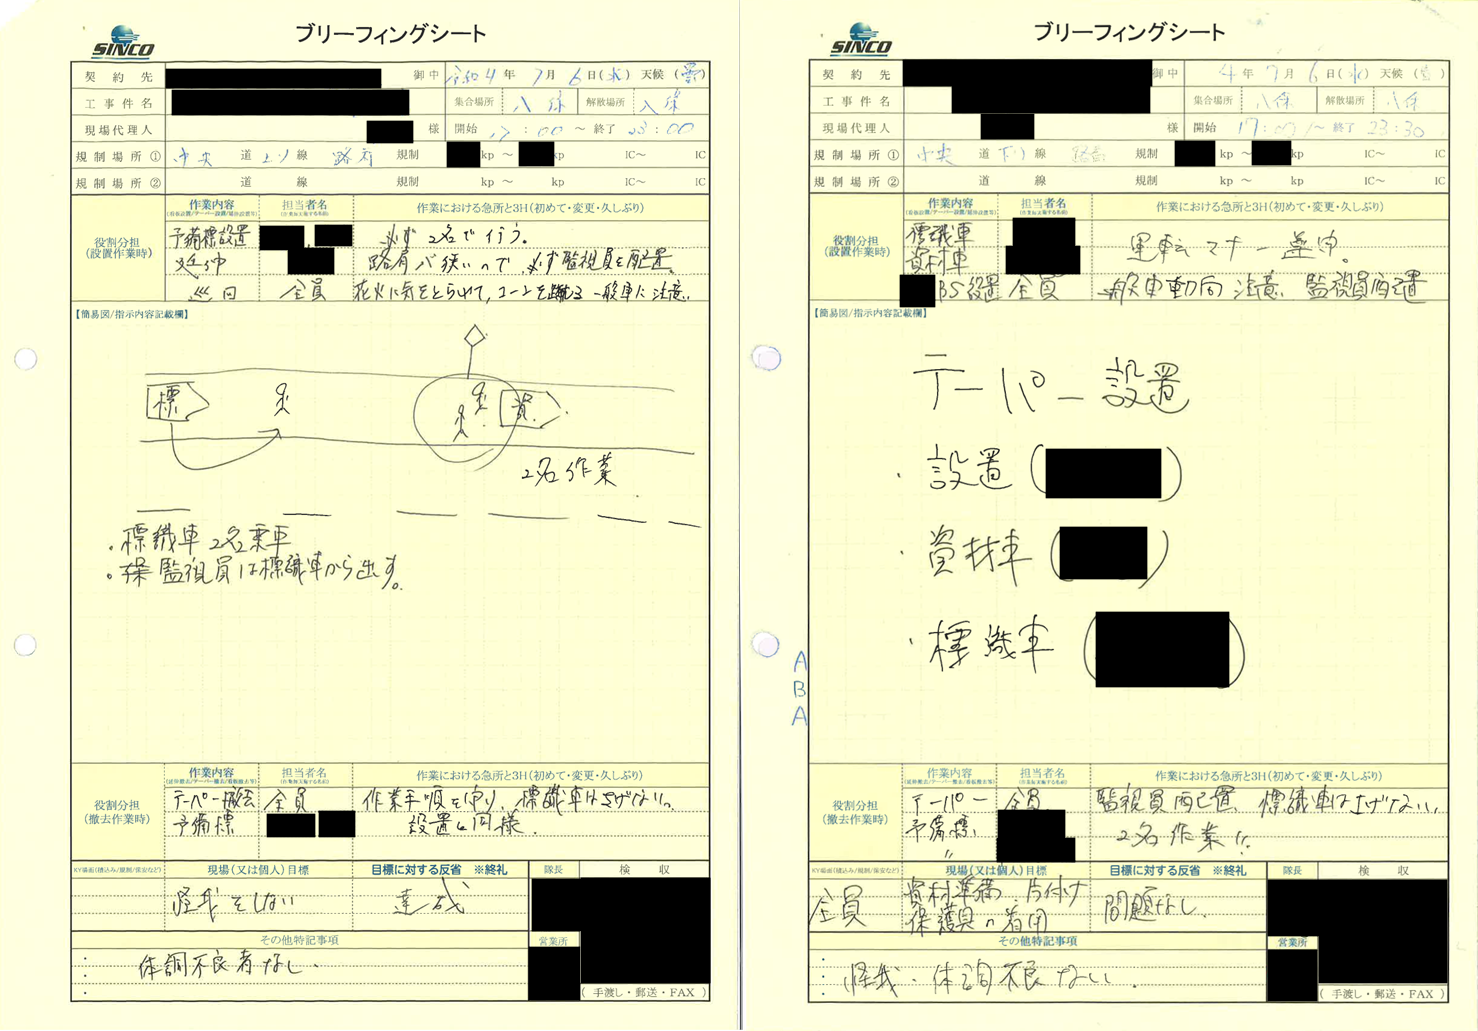 SINCO
ブリーフィングシート
契約先 御中 令和4年7月6日(水) 天候(曇)
工事件名 集合場所 八保 解散場所 八保
現場代理人 様 開始 17:00 ~ 終了 23:00
規制場所① 中央 道 上り 線 路肩 規制 kp ~ kp IC~ IC
規制場所② 道 線 規制 kp ~ kp IC~ IC
役割分担
(設置作業時)
作業内容 担当者名 作業における急所と3H(初めて・変更・久しぶり)
予備標設置 必ず2名で行う。
延伸 路肩が狭いので必ず監視員を配置
巡回 全員 花火に気をとられて、コーンを蹴る一般車に注意
【簡易図/指示内容記載欄】
標
資
2名作業
・標識車2名乗車
・監視員は標識車から出す。
役割分担
(撤去作業時)
作業内容 担当者名 作業における急所と3H(初めて・変更・久しぶり)
テーパー撤去 全員 作業手順を守り、標識車は下げない。
予備標 設置と同様。
現場(又は個人)目標 目標に対する反省 ※終礼 隊長 検収
怪我をしない 達成
その他特記事項 営業所
体調不良者なし。
(手渡し・郵送・FAX)
SINCO
ブリーフィングシート
契約先 御中 4年7月6日(水) 天候(曇)
工事件名 集合場所 八保 解散場所 八保
現場代理人 様 開始 17:00 ~ 終了 23:30
規制場所① 中央 道 下り 線 路肩 規制 kp ~ kp IC~ IC
規制場所② 道 線 規制 kp ~ kp IC~ IC
役割分担
(設置作業時)
作業内容 担当者名 作業における急所と3H(初めて・変更・久しぶり)
標識車 運転マナー遵守。
資材車
BS設置 全員 一般車動向注意、監視員配置
【簡易図/指示内容記載欄】
テーパー設置
・設置( )
・資材車( )
・標識車( )
A
B
A
役割分担
(撤去作業時)
作業内容 担当者名 作業における急所と3H(初めて・変更・久しぶり)
テーパー 全員 監視員配置、標識車は下げない。
予備標 2名作業
〃
現場(又は個人)目標 目標に対する反省 ※終礼 隊長 検収
全員 資材準備、片付け 問題なし。
保護具の着用
その他特記事項 営業所
怪我・体調不良なし。
(手渡し・郵送・FAX)